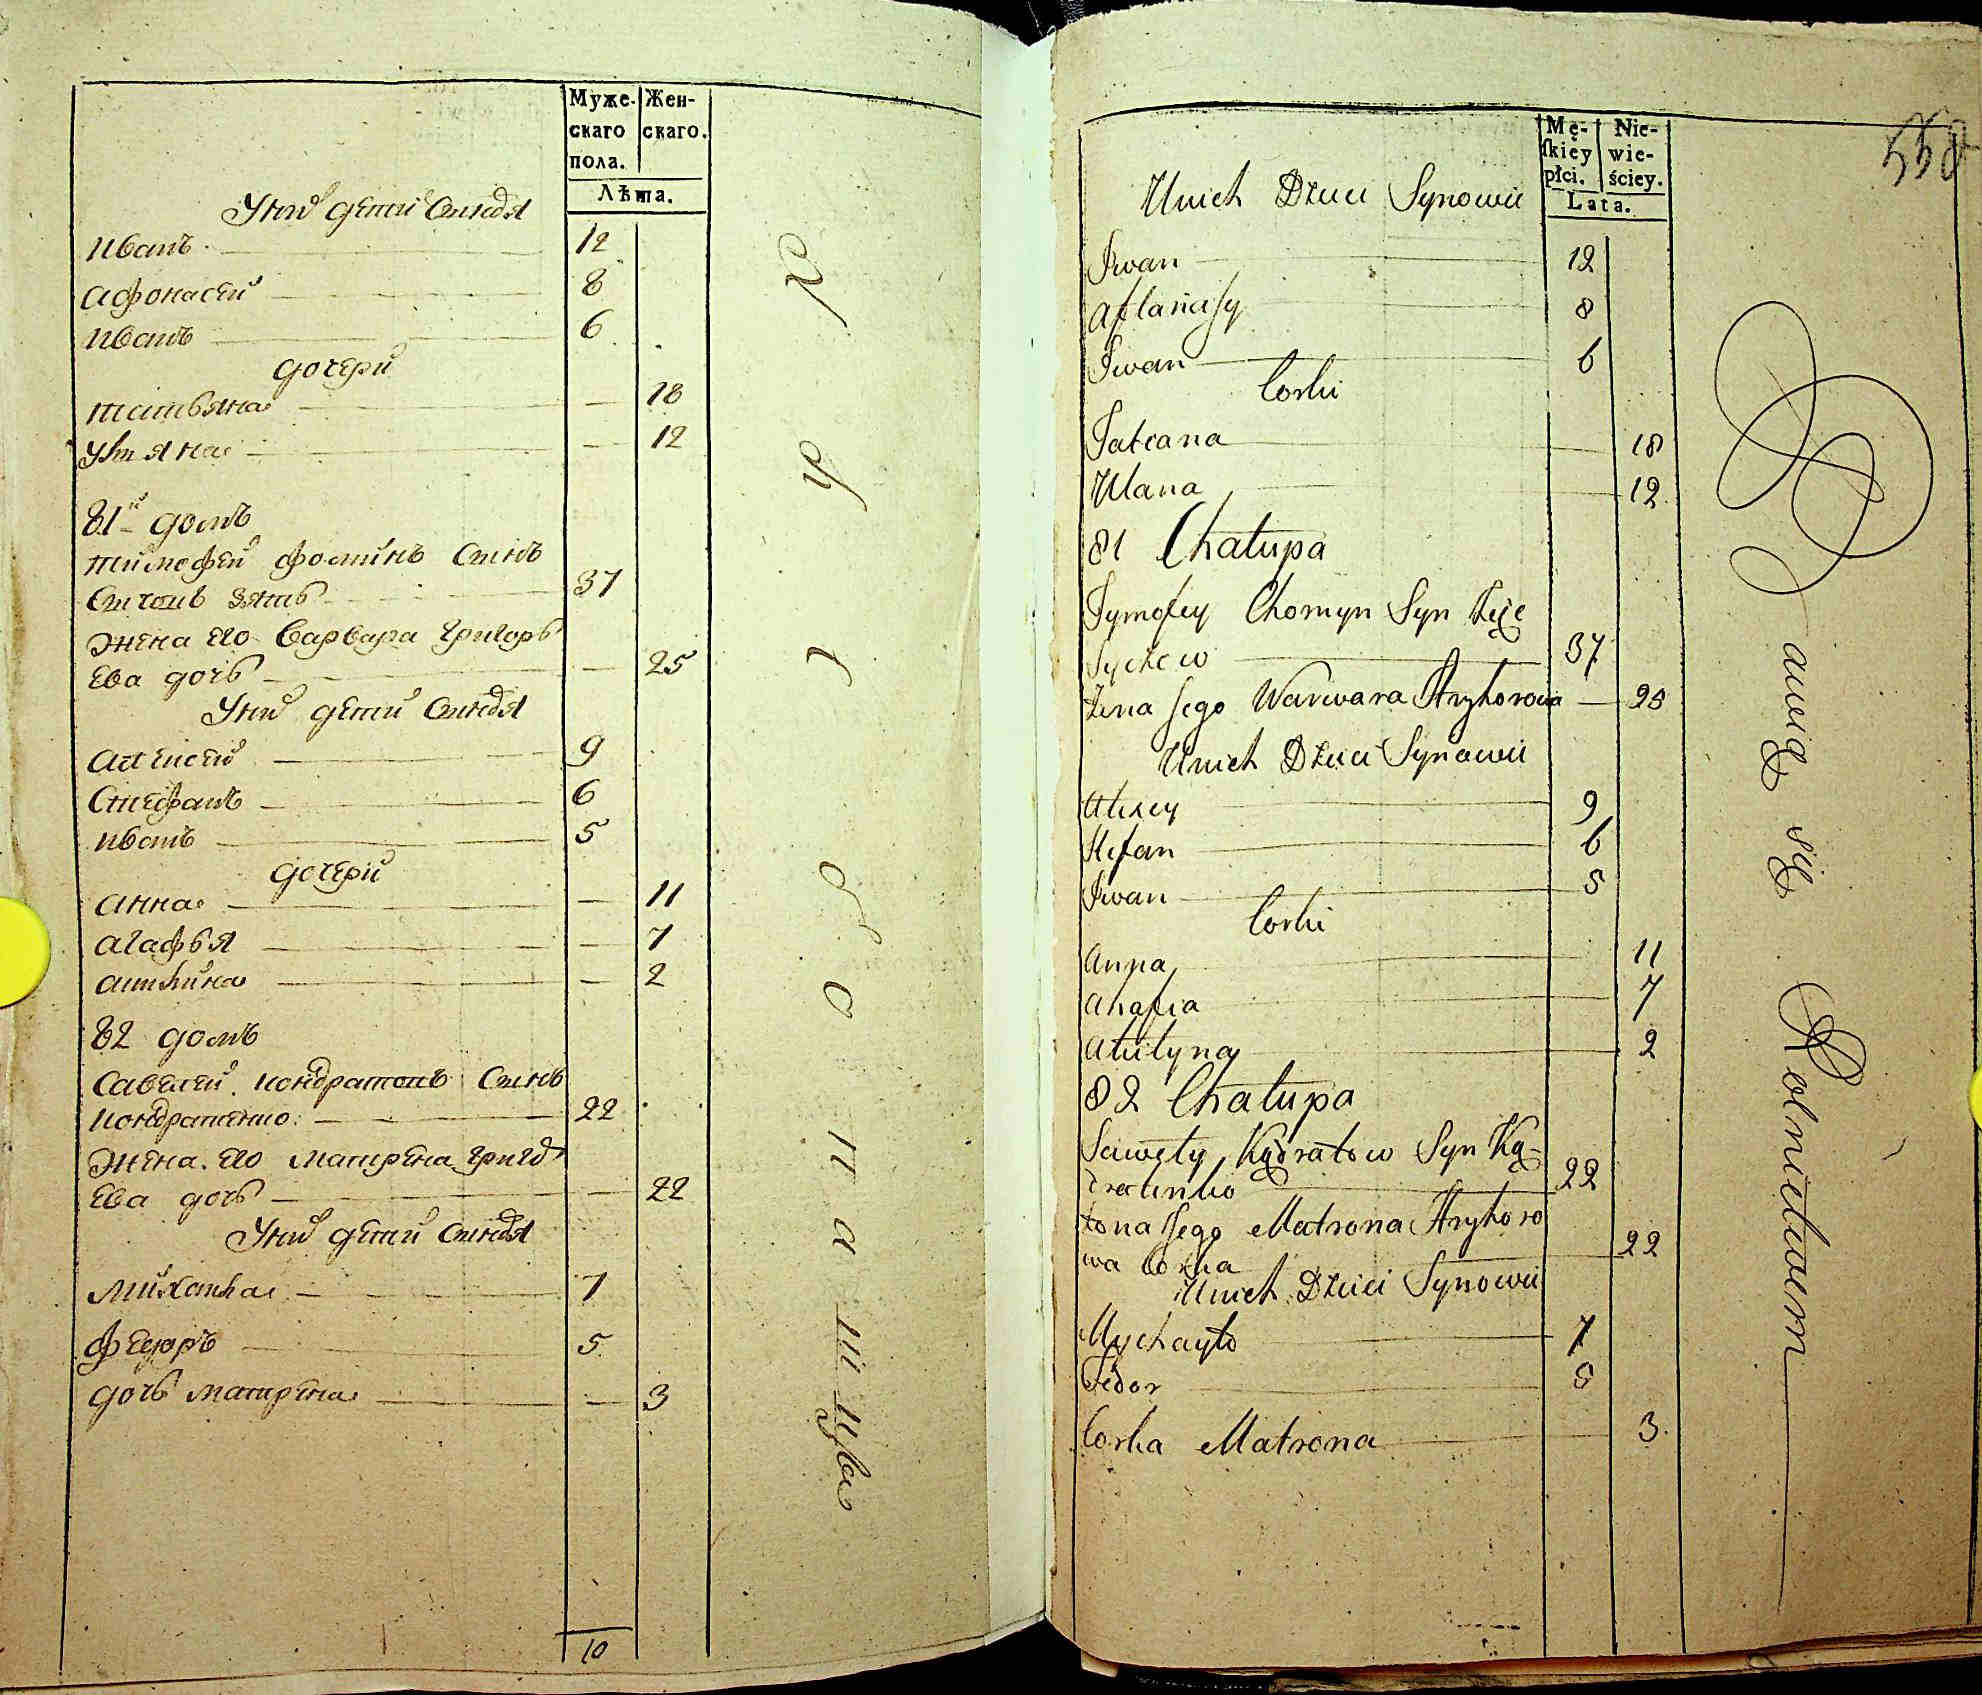 Муже-
скаго
пола.
Жен-
скаго.
Лѣта.
Уних дети Сыновя
Иванъ 12
Афонасей 8
Иванъ 6
дочери
татьяна — 18
Уляна — 12
81й домъ
тимофей фоминъ Сынъ
зять 37
жена его Варвара Григорь
ева дочь — 25
Уних дети Сыновя
Алексей 9
Стефанъ 6
Иванъ 5
дочери
анна — 11
агафья — 7
акилина — 2
82 домъ
Савелей кондратовъ Сынъ
кондратенко 22
жена его матрена григо
ева дочь — 22
Уних дети Сыновя
михайла 7
федоръ 5
дочь матрена — 3
10
Mę-
ſkiey
płci.
Nie-
wie-
ściey.
Lata.
558
Unich Dzieci Synowii
Iwan 12
Aftanaſy 8
Iwan 6
Corki
Tatiana 18
Ulana 12
81 Chałupa
Tymofey Chomyn Syn
37
Zona Jego Warwara Hryhorowa — 25
Unich Dzieci Synowii
Alexey 9
Stefan 6
Iwan 5
Corki
Anna 11
Ahafia 7
Akilyna 2
82 Chałupa
Sawely Kądratow Syn Ką-
dratenko 22
Zona Jego Matrona Hryhoro
wa Corka 22
Unich Dzieci Synowii
Mychayło 7
Fedor 5
Corka Matrona 3
się